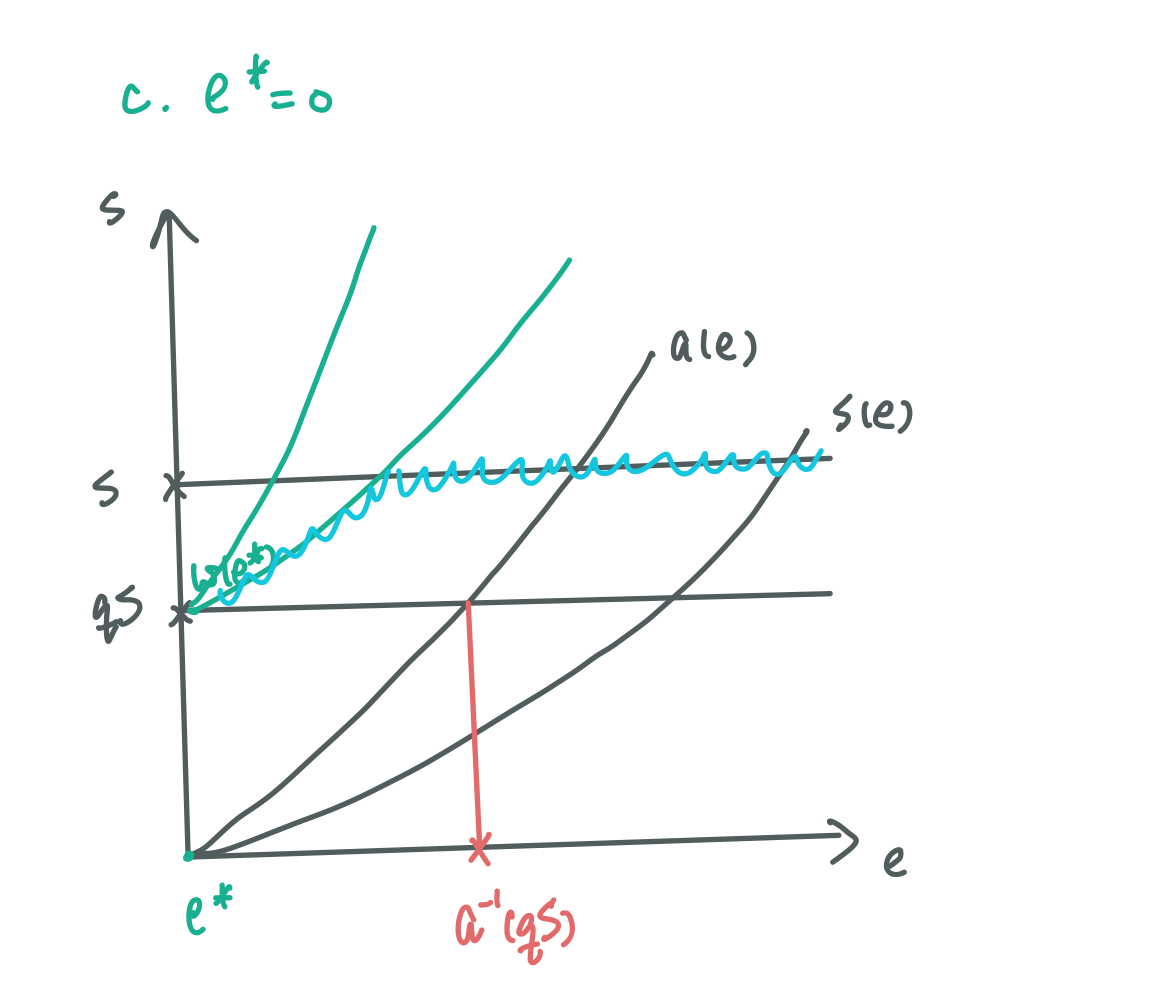 c. e*=0
s
a(e)
s(e)
s
(e*)
qs
e
e*
a⁻¹(qs)